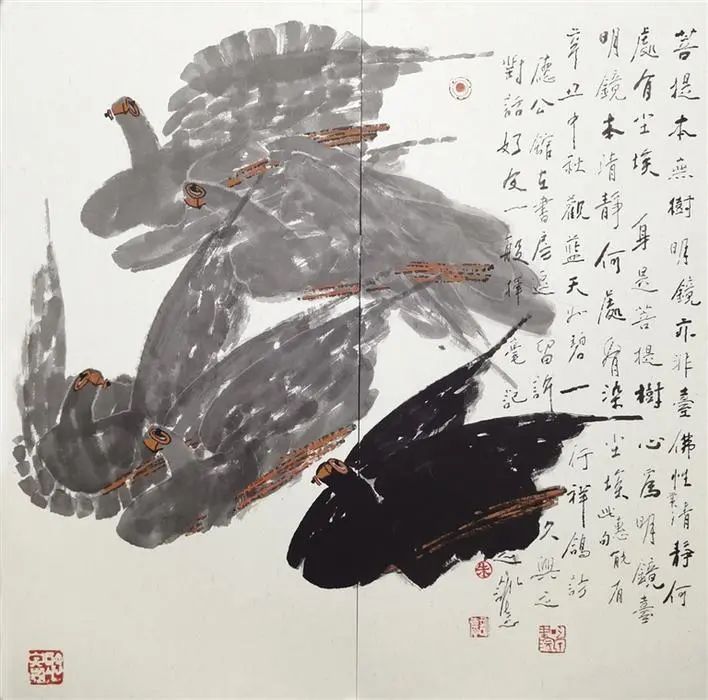 菩提本無樹明鏡亦非臺佛性清靜何
處有尘埃 身是菩提樹 心為明鏡臺
明鏡本清靜何處染尘埃此惠能
辛丑中秋觀藍天如碧一行祥鴿訪
德公館主書房逗留許久興之
對話好友一揮毫記之